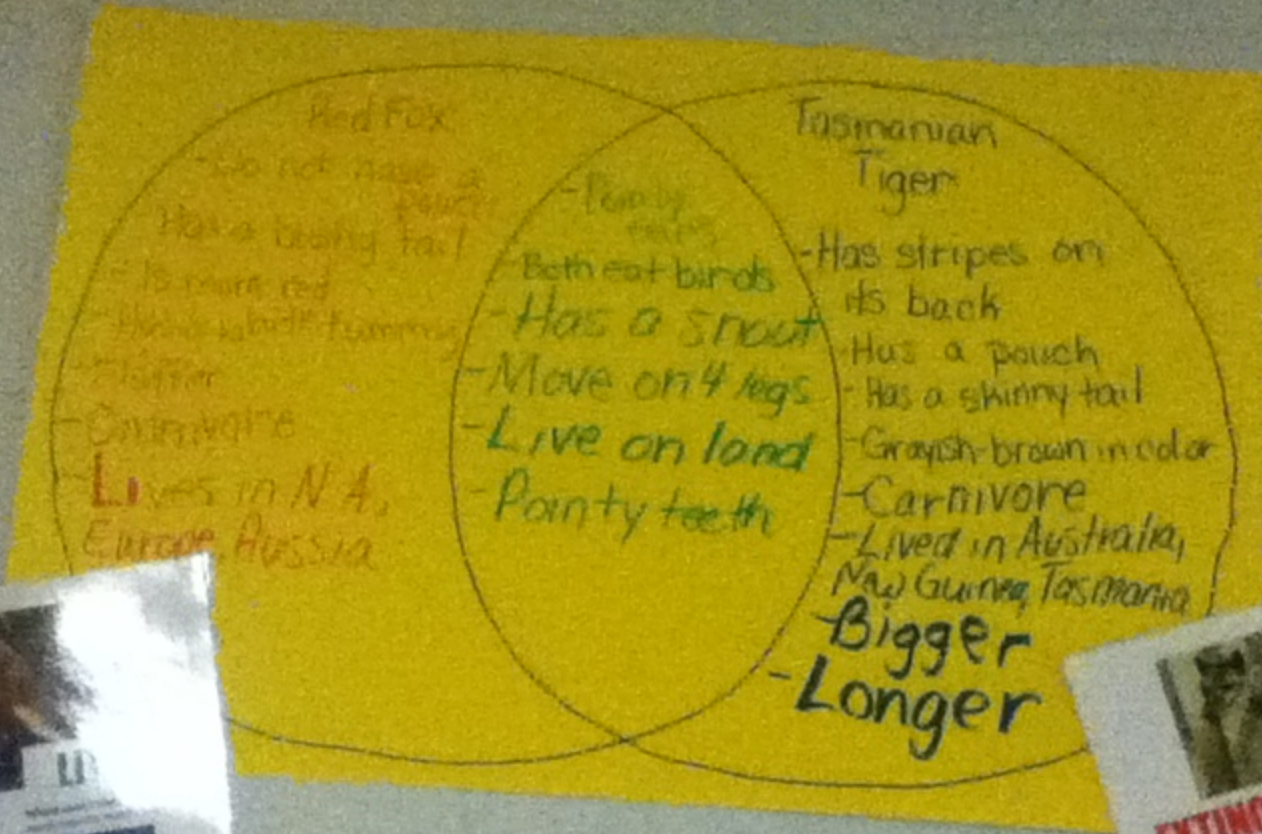 Red Fox
- Do not have a
pouch
Has a bushy tail
- Is more red
- Has a white tummy
-
- Omnivore
- Lives in N.A,
Europe, Russia
- Pointy
ears
- Both eat birds
- Has a snout
- Move on 4 legs
- Live on land
- Pointy teeth
Tasmanian
Tiger
- Has stripes on
its back
- Has a pouch
- Has a skinny tail
- Grayish-brown in color
- Carnivore
- Lived in Australia,
New Guinea, Tasmania
- Bigger
- Longer